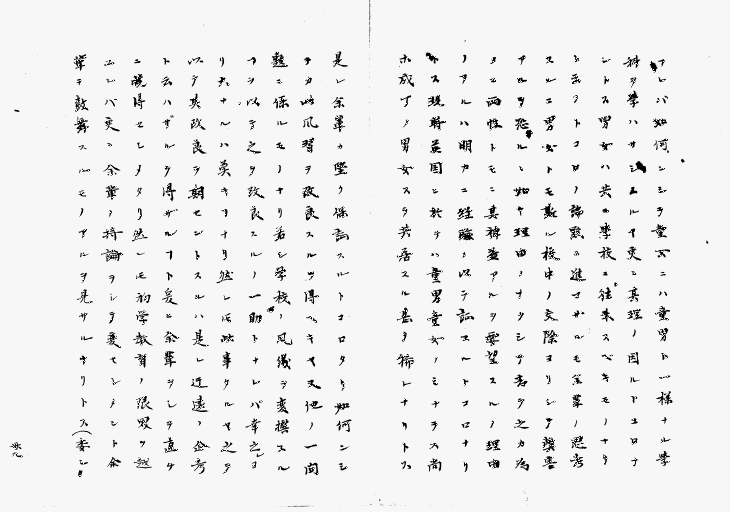 アレバ如何ンシテ童女ニハ童男ト一様ナル學
科ヲ學ハサシムルヤ更ニ真理ノ因ルトコロナ
ントス男女ハ共ニ學校ニ往来スベキモノナリ
ト云フトコロノ論點ニ進マザルモ余輩ノ思考
スルニ男女トモ斯ル校中ノ交際ヨリシテ弊害
アルヲ恐ルヽ如キ理由ノナクシテ者タ之カ為
メニ両性トモニ真裨益アルヲ要望スルノ理由
ノアルハ明カニ経験ニ以テ証スルトコロナリ
トス現時英国ニ於テハ童男童女ノミナラス尚
ホ成丁ノ男女スラ共居スル甚タ稀レナリトス
是レ余輩カ堅ク保証スルトコロタリ如何ンシ
テカ此風習ヲ改良スルヲ得ベキヤ又他ノ一問
題ニ係ルモノナリ若シ學校ノ風儀ヲ変換スル
ヿヲ以テ之ヲ改良スルノ一助トナレバ幸之ヨ
リ大ナルハ莫キヿナリ然レモ此事タルヤ之ヲ
以テ其改良ヲ期セントスルハ是レ迂遠ノ企考
ト云ハザルヲ得ザルナリ爰ニ余輩ヲシテ直ケ
ニ説得セシメタリ然レモ初学教育ノ限界ヲ越
エレバ更ニ余輩ノ持論ヲシテ変セシメント余
輩ヲ鼓舞スルモノアルヲ見サルナリトス(委シ